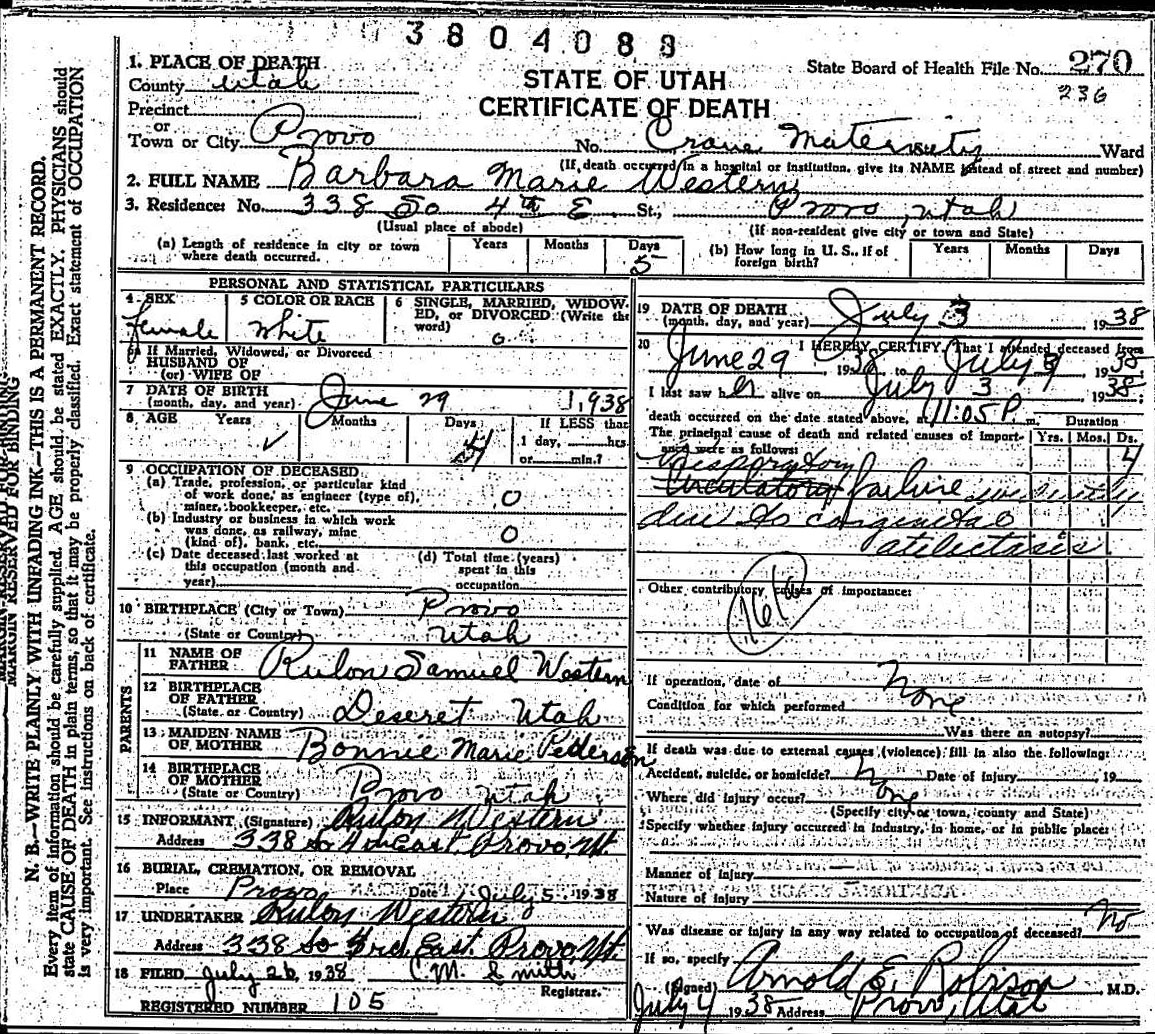 3804088
1. PLACE OF DEATH
County Utah
STATE OF UTAH
CERTIFICATE OF DEATH
State Board of Health File No. 270
236
Precinct
or
Town or City Provo No. Crane Maternity Ward
(If death occurred in a hospital or institution, give its NAME instead of street and number)
2. FULL NAME Barbara Marie Western
3. Residence: No. 338 So 4th E St., Provo, Utah
(Usual place of abode) (If non-resident give city or town and State)
(a) Length of residence in city or town where death occurred. Years Months Days 5
(b) How long in U. S., if of foreign birth? Years Months Days
PERSONAL AND STATISTICAL PARTICULARS
4 SEX female
5 COLOR OR RACE White
6 SINGLE, MARRIED, WIDOWED, or DIVORCED (Write the word)
6a If Married, Widowed, or Divorced
HUSBAND OF
(or) WIFE OF
7 DATE OF BIRTH
(month, day, and year) June 29 1,938
8 AGE Years Months Days 4 If LESS than
1 day, hrs.
or min.?
9 OCCUPATION OF DECEASED
(a) Trade, profession, or particular kind
of work done, as engineer (type of),
miner, bookkeeper, etc. 0
(b) Industry or business in which work
was done, as railway, mine
(kind of), bank, etc. 0
(c) Date deceased last worked at
this occupation (month and
year)
(d) Total time (years)
spent in this
occupation
10 BIRTHPLACE (City or Town) Provo
(State or Country) Utah
PARENTS
11 NAME OF
FATHER Rulon Samuel Western
12 BIRTHPLACE
OF FATHER
(State or Country) Deseret Utah
13 MAIDEN NAME
OF MOTHER Bonnie Marie Pederson
14 BIRTHPLACE
OF MOTHER
(State or Country) Provo Utah
15 INFORMANT (Signature) Rulon Western
Address 338 So 4th East Provo, Ut.
16 BURIAL, CREMATION, OR REMOVAL
Place Provo Date July 5, 1938
17 UNDERTAKER Rulon Western
Address 338 So 3rd East Provo, Ut.
18 FILED July 26, 1938 C M Smith
Registrar.
REGISTERED NUMBER 105
19 DATE OF DEATH
(month, day, and year) July 3, 1938
20 I HEREBY CERTIFY, That I attended deceased from
June 29, 1938, to July 3, 1938
I last saw her alive on July 3, 1938;
death occurred on the date stated above, at 11:05 P. m.
Duration
The principal cause of death and related causes of importance were as follows: Yrs. Mos. Ds.
4
Respiratory
Circulatory failure
due to congenital
atelectasis
Other contributory causes of importance:
If operation, date of None
Condition for which performed
Was there an autopsy?
If death was due to external causes (violence) fill in also the following:
Accident, suicide, or homicide? Date of injury 19
Where did injury occur? None
(Specify city or town, county and State)
Specify whether injury occurred in industry, in home, or in public place:
Manner of injury
Nature of injury
Was disease or injury in any way related to occupation of deceased? No
If so, specify
(Signed) Arnold E. Robison M.D.
July 4 1938 Address Provo, Utah
MARGIN RESERVED FOR BINDING
N. B.—WRITE PLAINLY WITH UNFADING INK—THIS IS A PERMANENT RECORD.
Every item of information should be carefully supplied. AGE should be stated EXACTLY. PHYSICIANS should
state CAUSE OF DEATH in plain terms, so that it may be properly classified. Exact statement of OCCUPATION
is very important. See instructions on back of certificate.